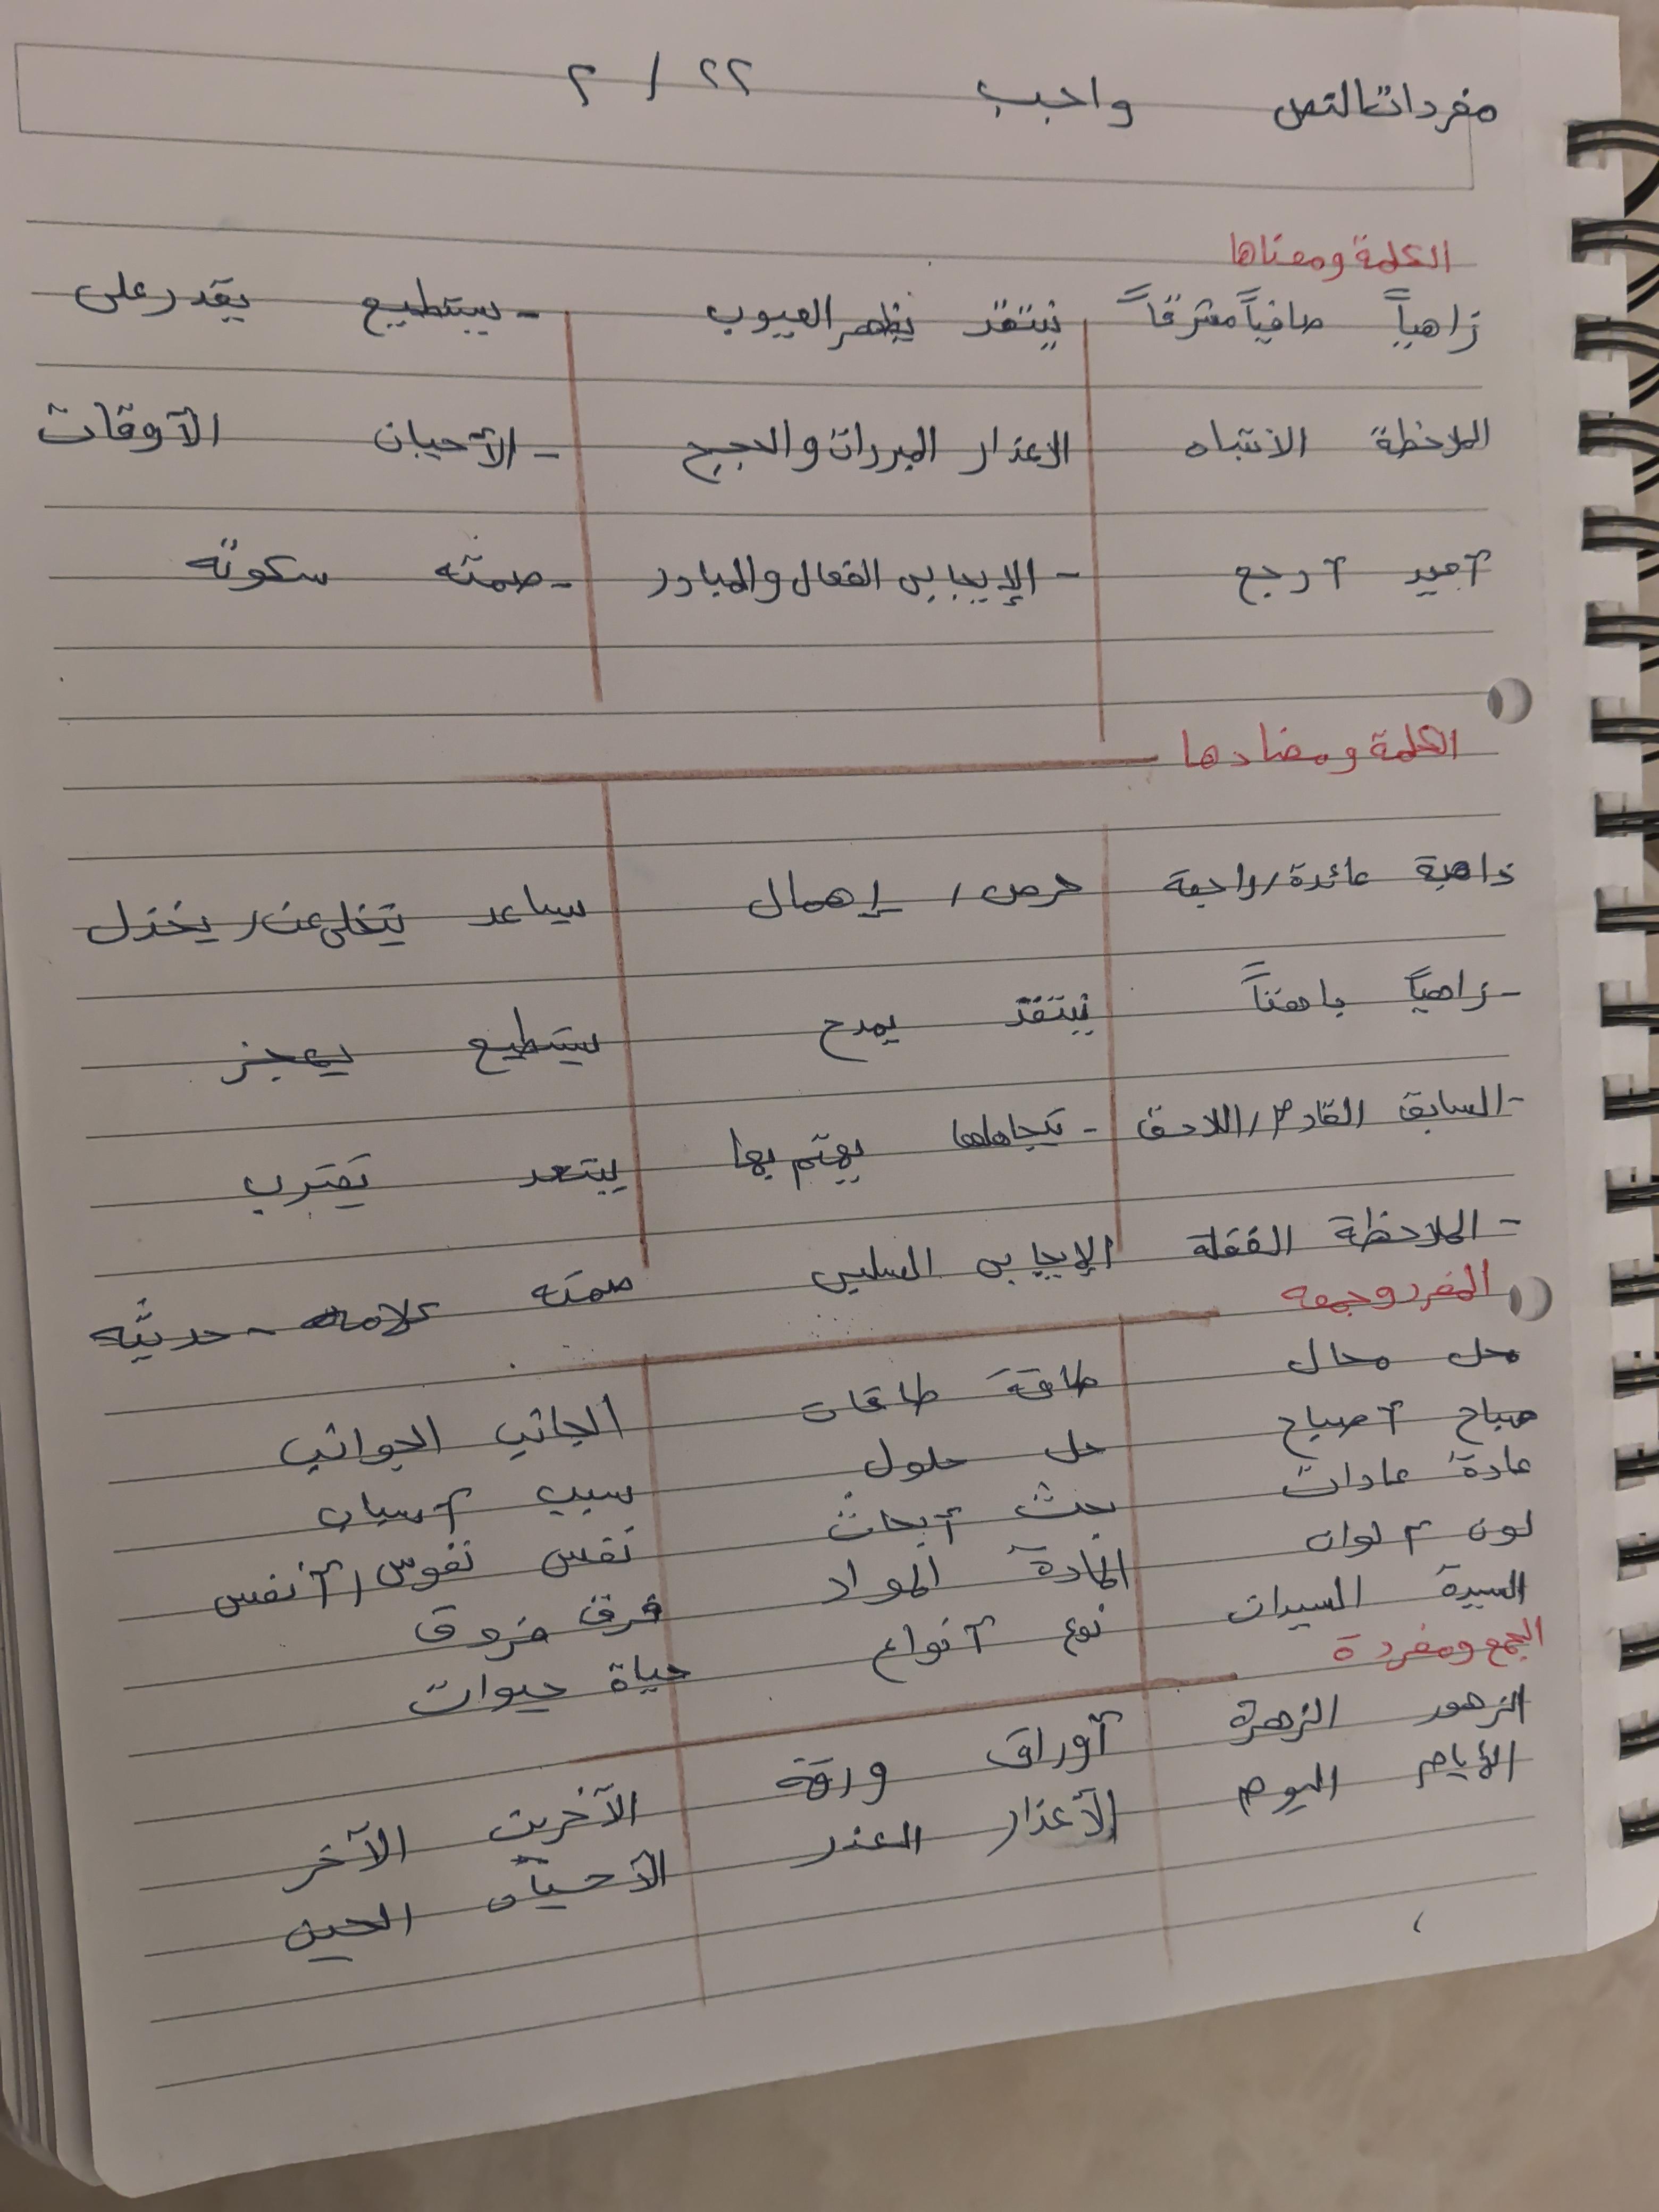 مفردات النص واجب ٢٢ / ٢
الكلمة ومعناها
زاهياً صافياً مشرقاً ينتقد يظهر العيوب - يستطيع يقدر على
الملاحظة الانتباه الاعذار المبررات والحجج - الأحيان الأوقات
أعود أرجع - الإيجابي الفعال والمبادر - صمته سكوته
الكلمة ومضادها
ذاهبة عائدة / راجعة حرص / إهمال يساعد يتخلى عن / يخذل
- زاهياً باهتاً ينتقد يمدح يستطيع يعجز
- السابق القادم / اللاحق - تتجاهلها يهتم بها يبتعد تقترب
- الملاحظة الغفلة الإيجابي السلبي صمته كلامه - حديثه
المفرد وجمعه
محل محال طاقة طاقات الجانب الجوانب
صباح أصباح حل حلول سبب أسباب
عادة عادات بحث أبحاث نفس نفوس / أنفس
لون ألوان المادة المواد فرق فروق
السيدة السيدات نوع أنواع حياة حيوات
الجمع ومفردة
الزهور الزهرة أوراق ورقة الآخرين الآخر
الأيام اليوم الأعذار العذر الأحيان الحين